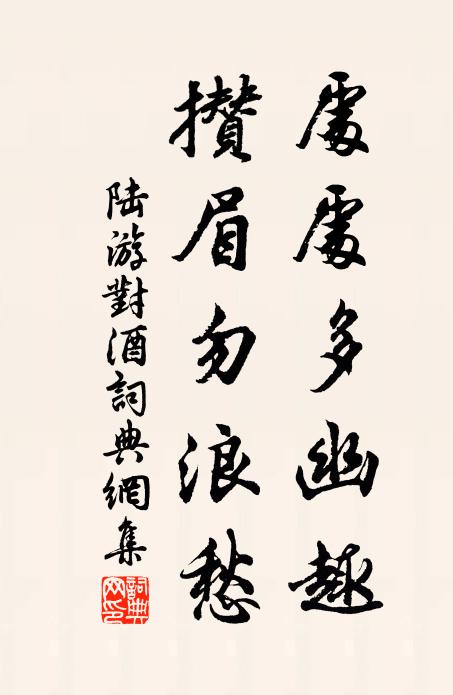 處處多幽趣
攢眉勿浪愁
陆游對酒詞典網集
詞典網印